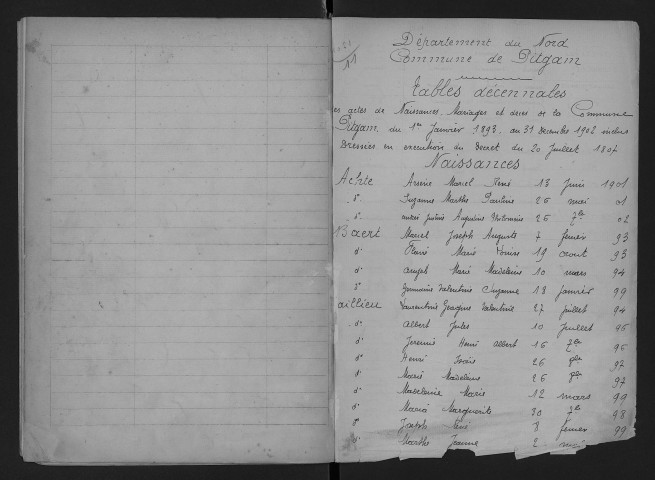 11
Département du Nord
Commune de Pitgam
Tables décennales
es actes de Naissances, Mariages et décès de la Commune
Pitgam, du 1er Janvier 1893, au 31 Décembre 1902 inclus
Dressées en exécution du Décret du 20 Juillet 1807
Naissances
Achte Arsène Marcel René 13 Juin 1901
d° Suzanne Marthe Pauline 26 mai 01
d° Augustin 26 7bre 02
Baert Marcel Joseph Auguste 7 février 93
d° Marie Louise 19 août 93
d° Marie Madeleine 10 mars 94
d° Germaine Valentine Suzanne 18 janvier 99
aillieu Laurentine Georgine Valentine 27 juillet 94
d° Albert Jules 10 Juillet 96
d° Jérémie Henri Albert 16 7bre 96
d° Henri 26 9bre 97
d° Marie Madeleine 26 9bre 97
d° Madeleine Marie 12 mars 99
d° Maria Marguerite 30 7bre 98
d° Joseph René 8 février 99
Marthe Jeanne 2 mai